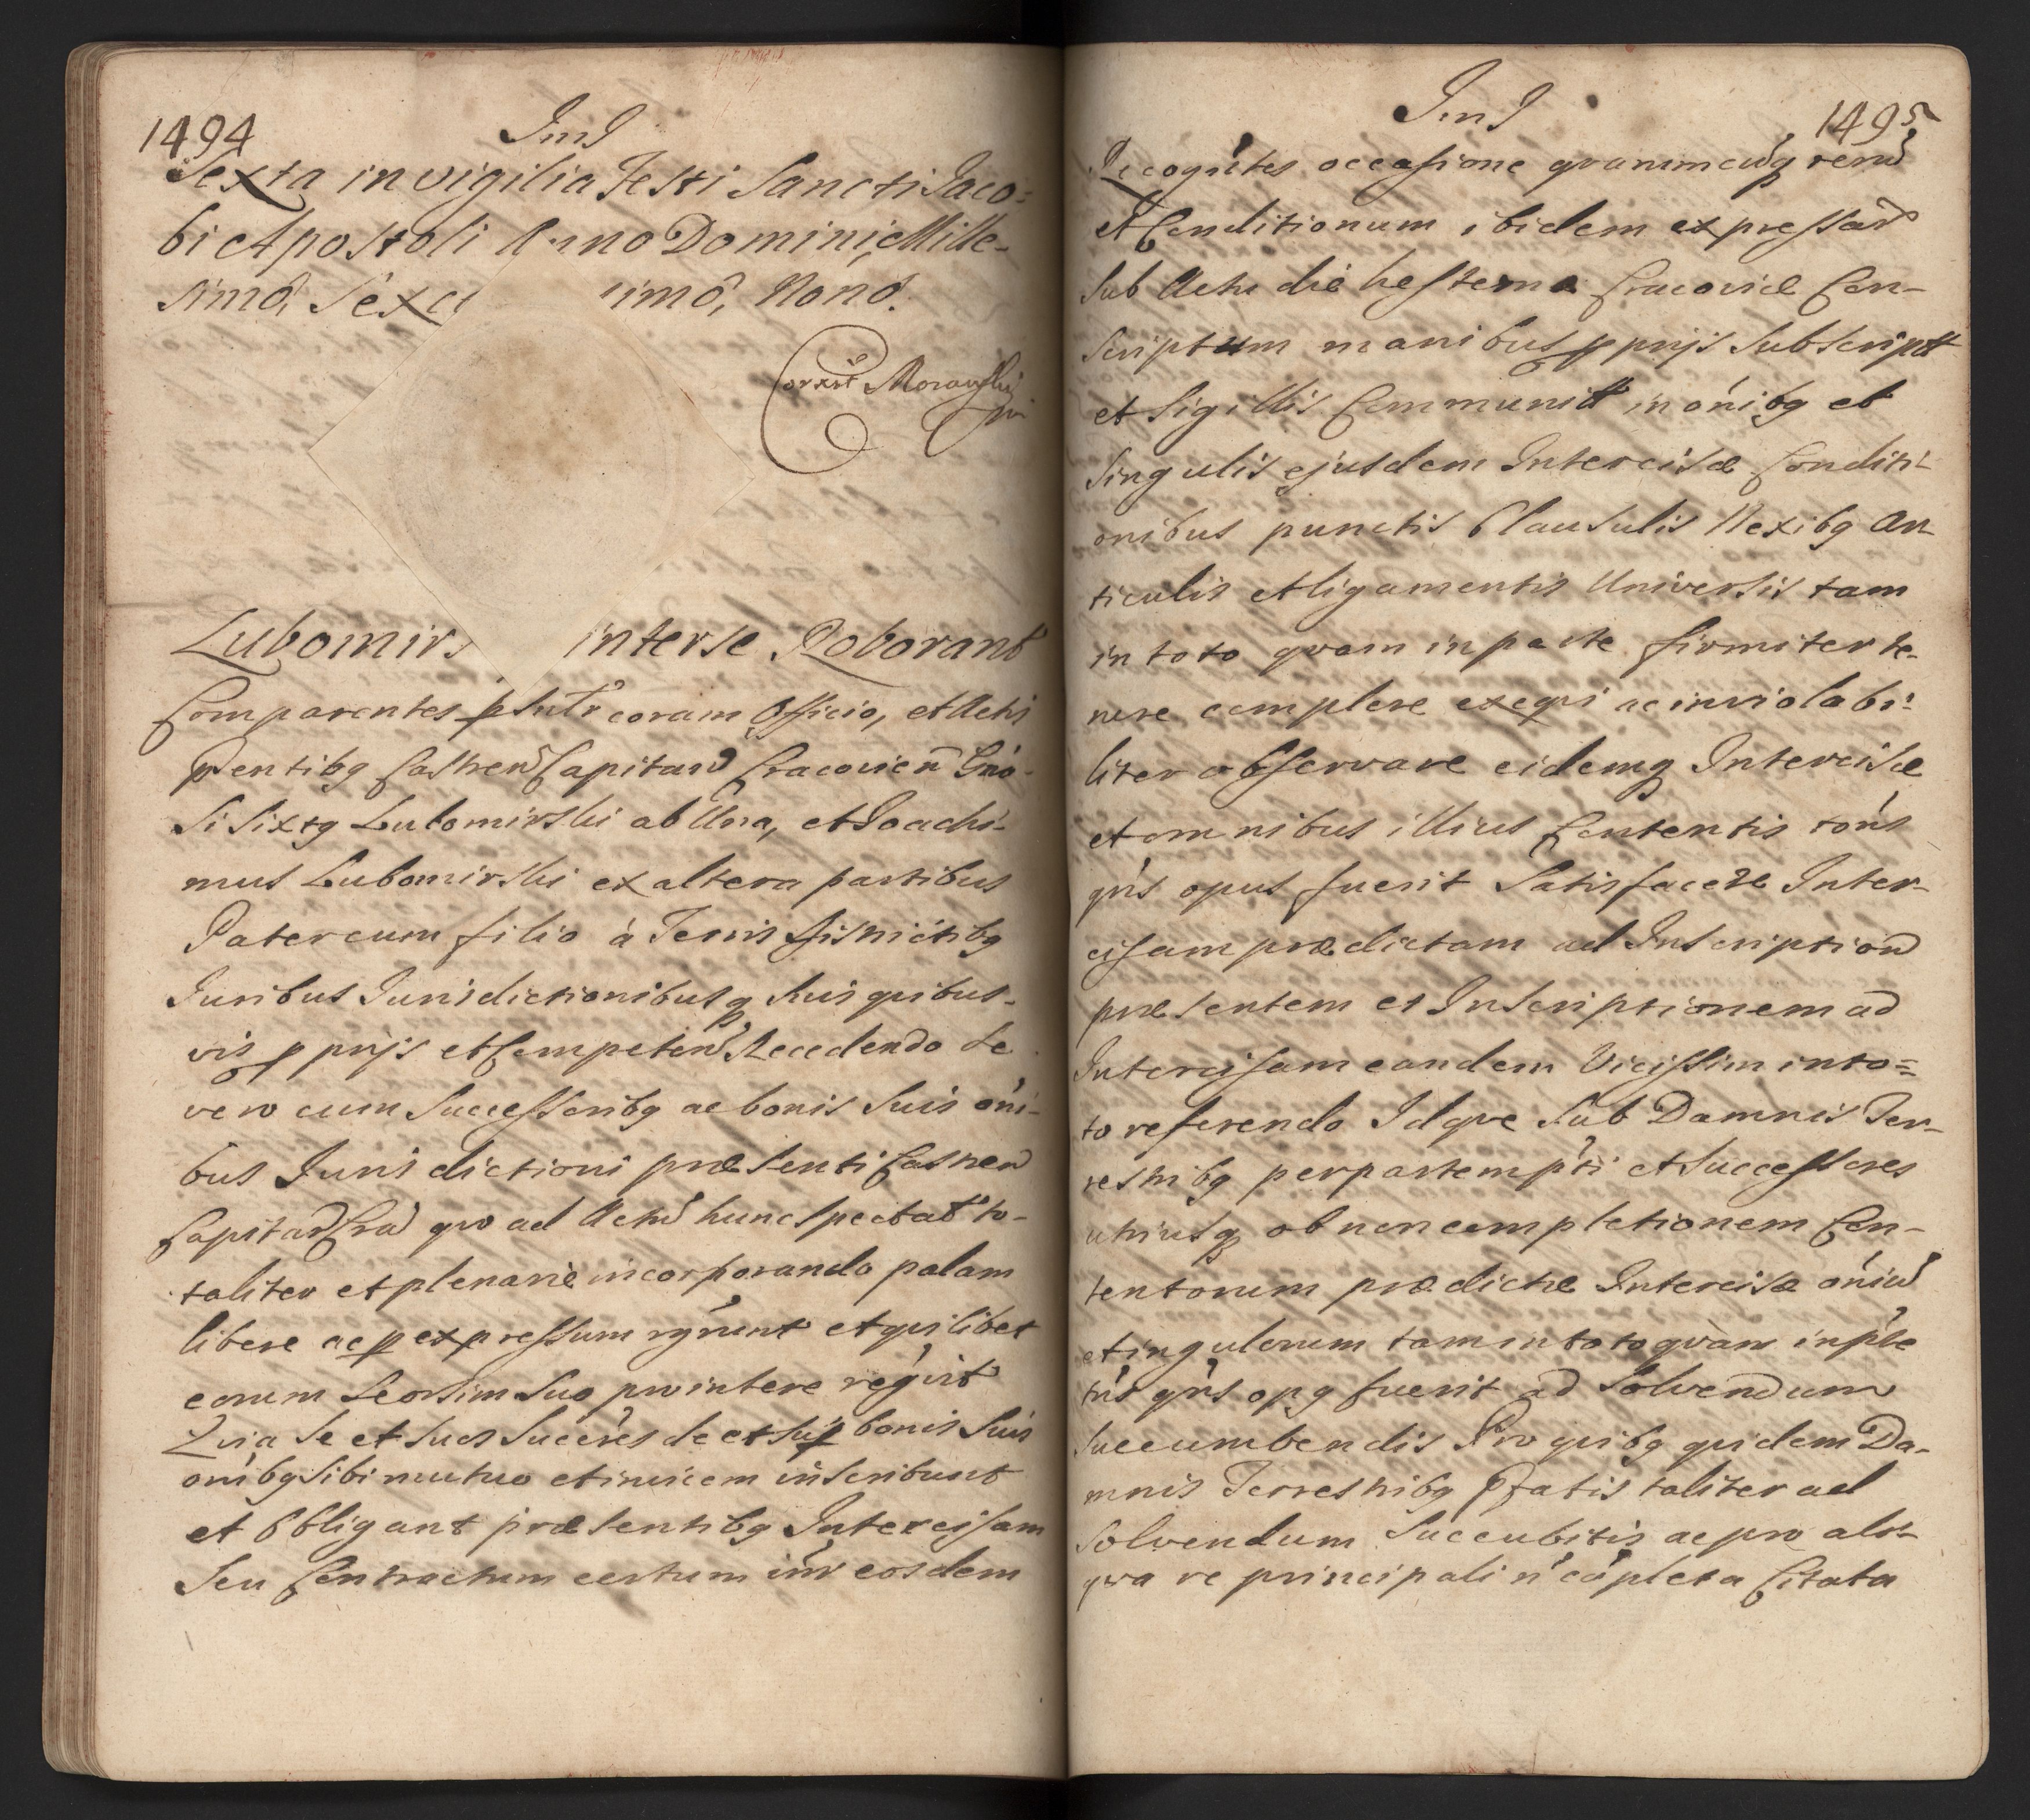 1494
Ind
Sexta in vigilia Festi Sancti Iaco=
bi Apostoli Anno Domini Mille-
simo, Sexa simo, Nono.
Correxit Morawski
mp
Lubomirs interse Roborant
Comparentes psntr coram Officio, et Actis
pntibg Castren Capitan Cracovien Gno-
si Sixtg Lubomirski ab Una, et Joachi-
mus Lubomirski ex altera partibus
Pater cum filio à Terris Districtibg
Iuribus Iurisdictionibusq suis quibus-
vis pprijs et Competen Recedendo se
vero cum Successoribg ac bonis suis oni-
bus Jurisdictioni præsenti Castren
Capitan Cra quo ad Actu hunc spectat to-
taliter et plenarie incorporando palam
libere ac p expressum rgrunt et quilibet
eorum seorsim suo pro intere regvit
Quia se et suos Succeres de et sup bonis suis
onibg sibi mutuo et invicem inscribunt
et Obligant præsentibg Intercisam
seu Contractum certum intr eosdem
Ind
1495
Recogntes occasione quarumcuq reru
et Conditionum ibidem expressar
sub Actu die hesterna Cracoviæ Con-
scriptum manibus pprijs subscriptt
et sigillis Communitt in onibg et
singulis ejusdem Intercisæ Conditi-
onibus punctis Clausulis Nexibg Ar-
ticulis et ligamentis Universis tam
in toto quam in parte firmiter te-
nere complere exequi ac inviolabi-
liter observare eidemq Intercisæ
et omnibus illius Contentis tons
qns opus fuerit Satisfacere Inter-
cisam prædictam ad Inscription
præsentem et Inscriptionem ad
Intercisam eandem Vicissim in to=
to referendo Idque sub Damnis Ter-
restribg per partem pti et Successores
utriusq ob non completionem Con-
tentorum prædictæ Intercisæ oniu
et singulorum tam in toto quam in pte
tns qns opg fuerit ad solvendum
succumbendis Pro quibg quidem Da-
mnis Terrestribg Pfatis taliter ad
solvendum succubitis ac pro alit-
qua re principali n copleta Citata